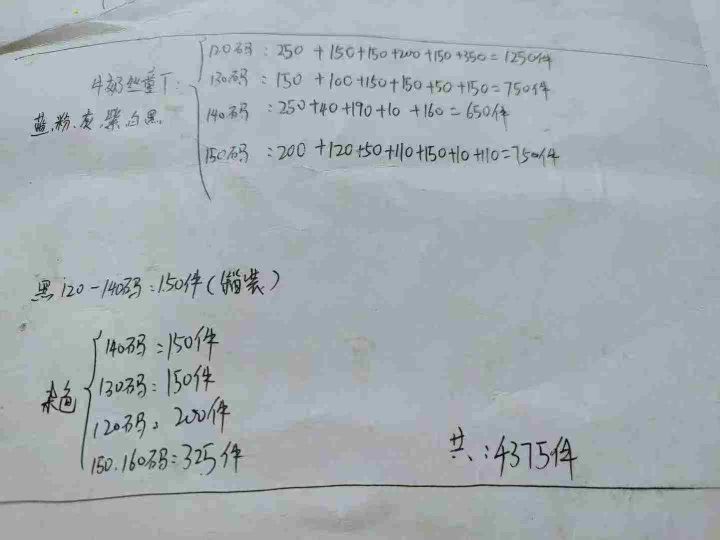 120码：250+150+150+200+150+350=1250件
牛奶丝童T：130码：150+100+150+150+50+150=750件
蓝.粉.灰.紫.白.黑.
140码：250+40+190+10+160=650件
150码：200+120+50+110+150+10+110=750件
黑120-140码：150件(箱装)
140码：150件
杂色
130码：150件
120码：200件
150.160码：325件
共：4375件